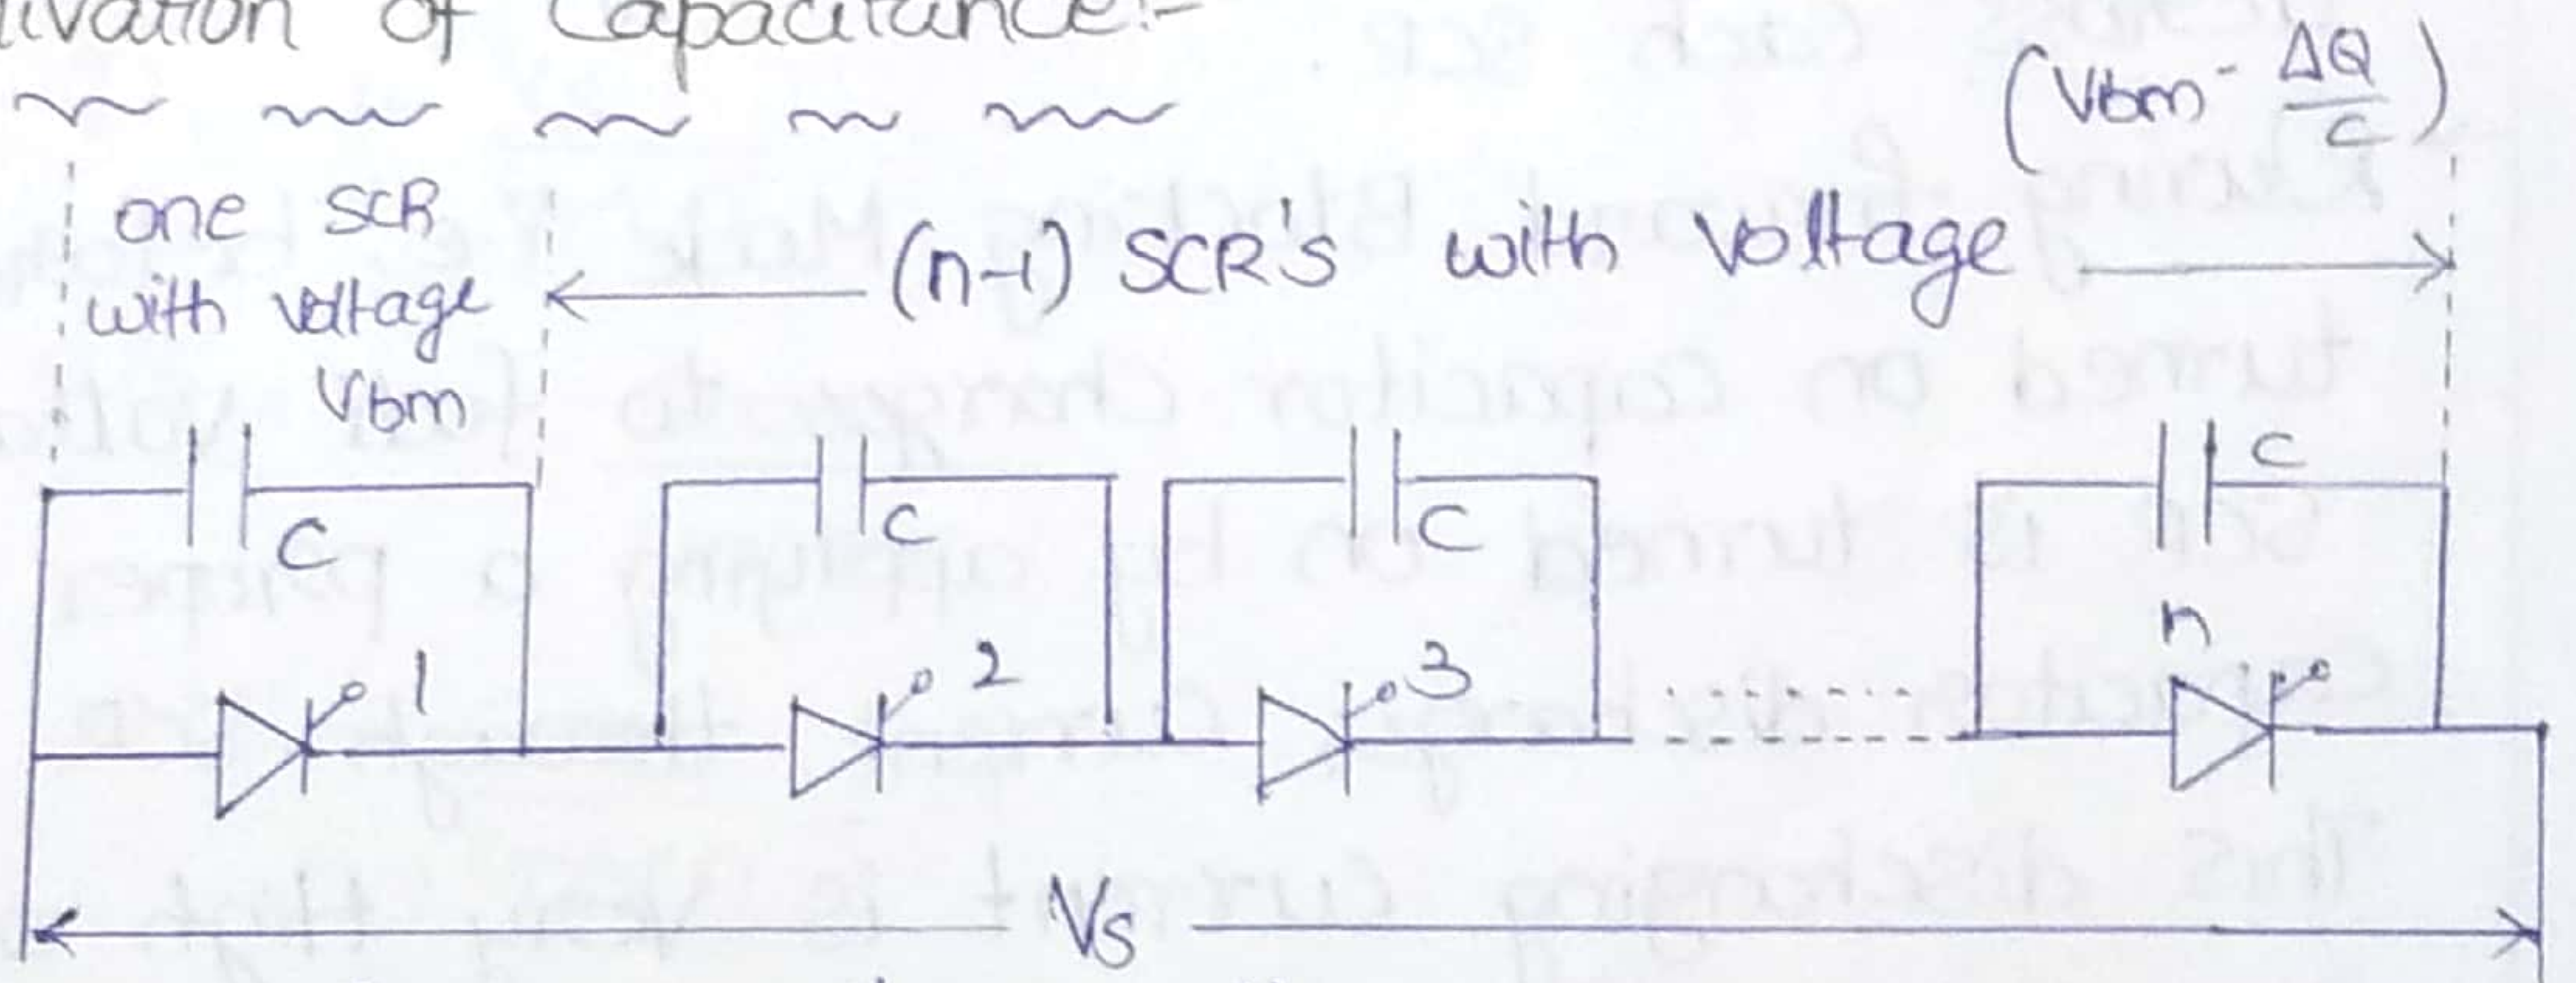 of Capacitance:-
(Vbm - ΔQ/C)
one SCR
with voltage
Vbm
(n-1) SCR's with voltage
C C C C
1 2 3 n
Vs